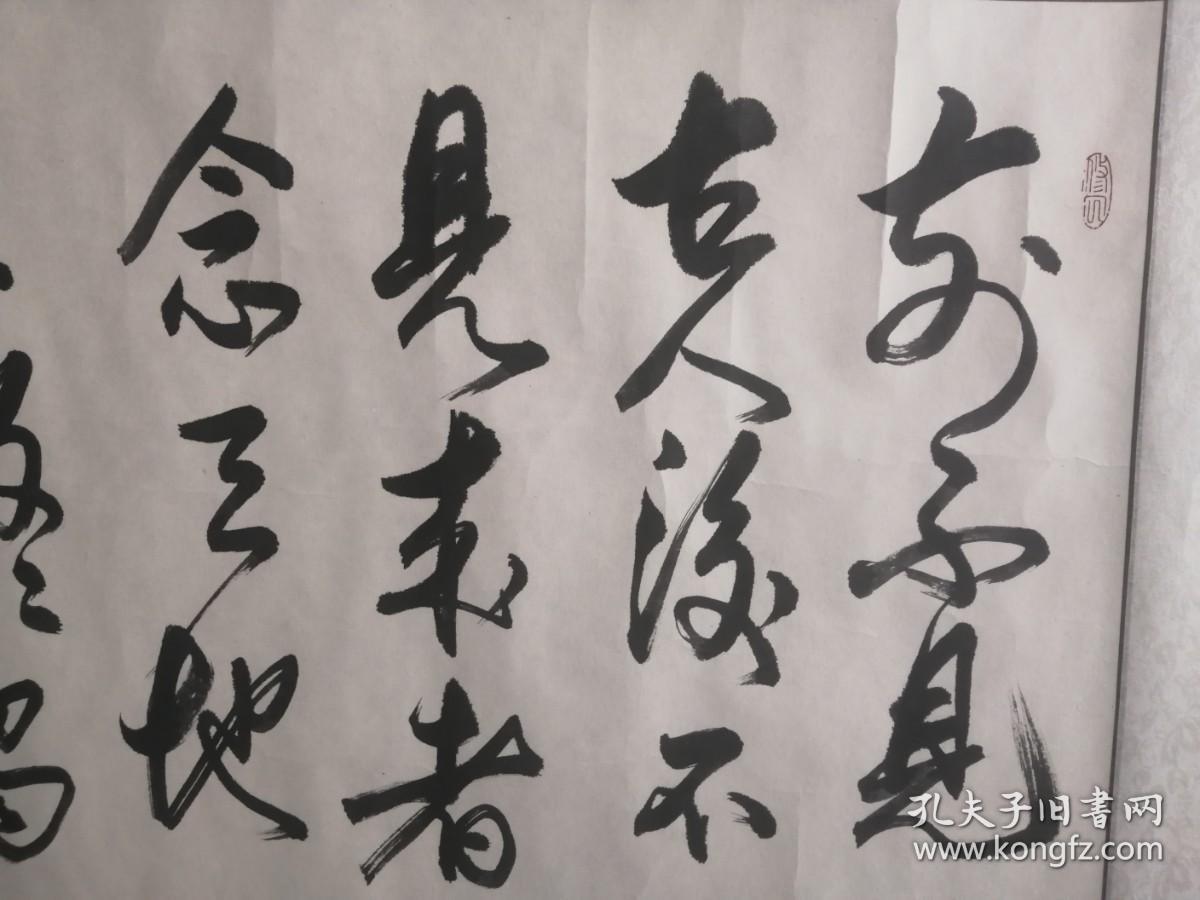 前不見
古人後不
見来者
念天地
孔夫子旧書网
www.kongfz.com